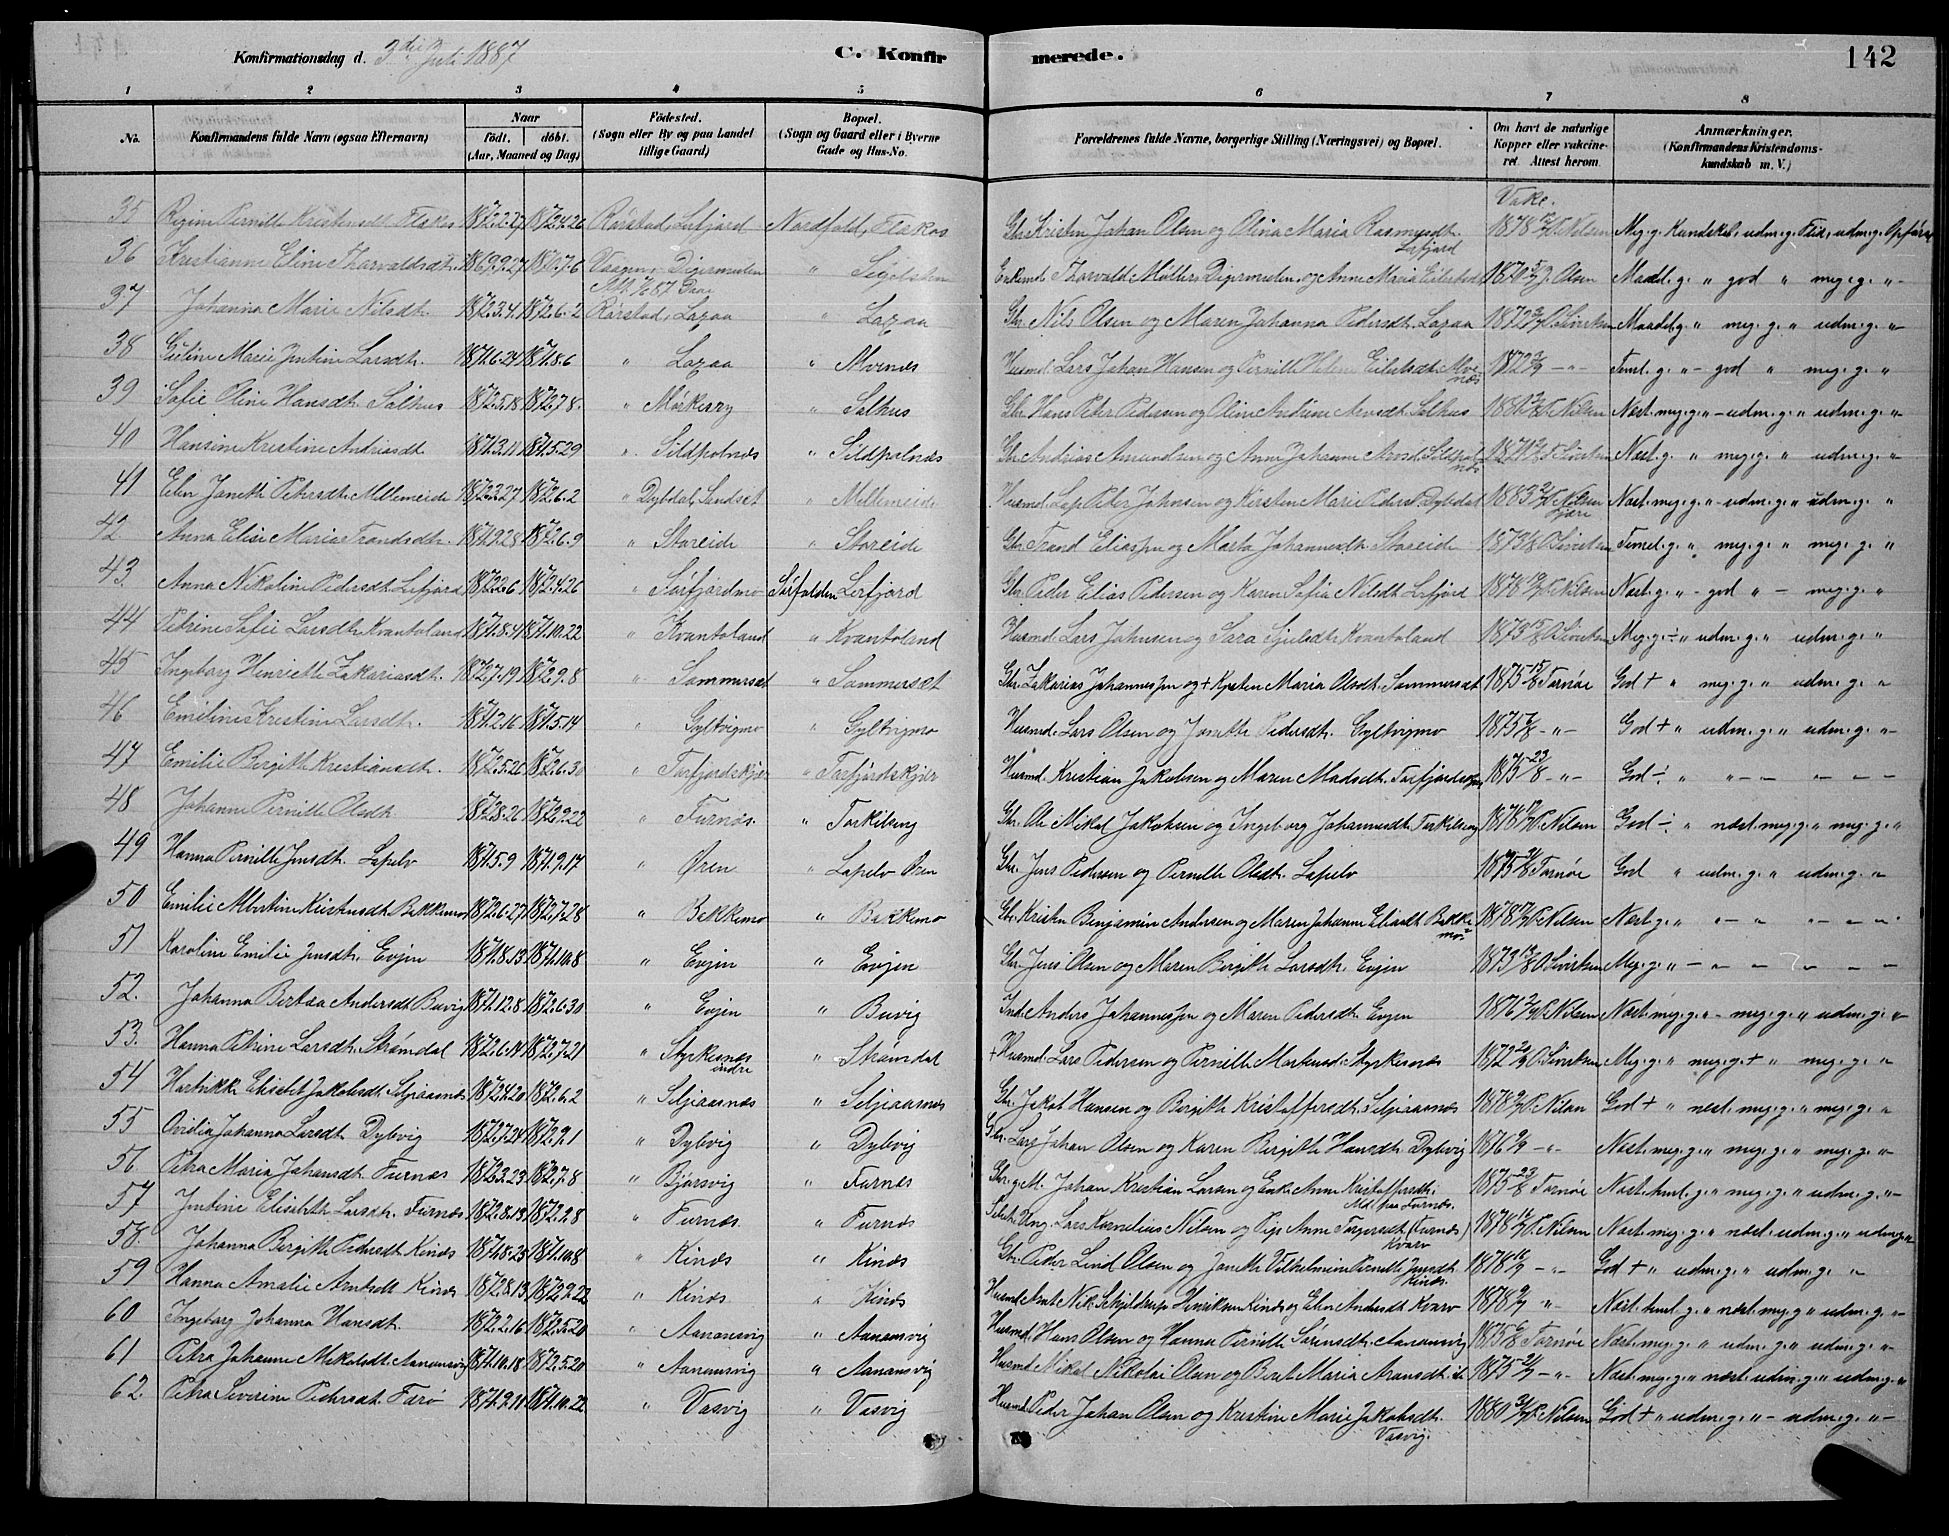 Konfirmationsdag d. 3die Juli 1887
C. Konfirmerede.
142
1 2 3 4 5 6 7 8
No. Konfirmandens fulde Navn (ogsaa Efternavn) Naar født. døbt. (Aar, Maaned og Dag) Fødested. (Sogn eller By og paa Landet tillige Gaard) Bopæl. (Sogn og Gaard eller i Byerne Gade og Hus-No. Forældrenes fulde Navne, borgerlige Stilling (Næringsvei) og Bopæl. Om havt de naturlige Kopper eller vakcineret. Attest herom. Anmærkninger. (Konfirmandens Kristendomskundskab m. V.)
Vakc.
35 Regine Pernille 1872.2.27 1872.4.26 Rørstad, Lerfjord Nordfold, Gbr. Kristen Johan Olsen og Olina Maria Rasmusdt. Lerfjord 1878 P. Nilsen Meg. g. Kundskab, udm. g. Flid, udm. g. Opførsel
36 Kristianne Eline Thorvaldsdt. 1869.9.27 Vaagen, Digermulen " Enkemd. Thorvald Møller, Digermulen, og Anne Maria 1870 J. Olsen Maadel. g. " god " meg. g. "
37 Johanna Marie Nilsdt. 1872.3.4 1872.6.2 Rørstad, Laxaa " Laxaa Gbr. Nils Olsen og Maren Johanna Pedersdt. Laxaa 1872 O. Sivertsen Maadel. g. " meg. g. " udm. g. "
38 Marie Justine Larsdt. 1871.6.24 1871.8.6 " Laxaa " Alvenæs Husmd. Lars Johan Hansen og Pernille Helene Eilertsdt. Alvenæs 1872 - " - Teml. g. " - god " meg. g. "
39 Sofie Oline Hansdt. Salhus 1872.5.18 1872.7.8. " Mørkesry " Salhus Gbr. Hans Peter Pedersen og Oline Andrine Arnsdt. Salhus 1881 P. Nilsen Næst. meg. g. " - udm. g. " udm. g. "
40 Hansine Kristine Andreasdt. 1871.3.11 1871.5.29 " Sildpolnæs " Sildpolnæs Gbr. Andreas Amundsen og Anne Johanne Sildpolnæs 1871 O. Sivertsen Næst. g. " meg. g. " udm. g. "
41 Elen Janette Pedersdt. Mellemeide 1872.2.27 1872.6.2 " Dybdal, Sandset " Mellemeide Husmd. Lap Peder Johnsen og Kirsten Marie Pedersdt. Dybdal 1883 P. Nilsen Næst. meg. g. " - udm. g. " udm. g. "
42 Anna Elise Maria Trondsdt. 1871.9.28 1872.6.9 " Storeide " Storeide Gbr. Trond Eliassen og Marta Johannesdt. Storeide 1873 O. Sivertsen Temel. g. " meg. g. " meg. g. "
43. Anna Nikoline Pedersdt. Lerfjord 1872.2.6 1872.4.26 " Sørfjordmo Sørfolden Lerfjord Gbr. Peder Elias Pedersen og Karen Sofia Nilsdt. Lerfjord 1878 P. Nilsen Næst. g. " - god " - meg. g. "
44 Petrine Sofie Larsdt. Kvantoland 1871.8.4 1871.10.22 " Kvantoland " Kvantoland Husmd. Lars Johnsen og Sara Sjulsdt. Kvantoland 1873 O. Sivertsen Meg. g. ÷ " udm. g. " udm. g. "
45 Ingeborg Henriette Zakariasdt. 1872.7.19 1872.9.8 " Sommerset " Sommerset Gbr. Zakarias Johannessen og + Kirsten Maria Olsdt. Sommerset 1875 Tornøe God + " meg. g. " udm. g. "
46 Emeline Kristine Larsdt. 1871.2.16 1871.5.14 " Gyltvigmo " Gyltvigmo Husmd. Lars Olsen og Janette Pedersdt. Gyltvigmo 1875 - " - God + " udm. g. " udm. g. "
47 Emilie Birgitte Kristiansdt. 1872.5.26 1872.6.30 " Torfjordskjær " Torfjordskjær Husmd. Kristian Jakobsen og Maren Madsdt. Torfjordskjær 1875 - " - God ÷ " " - - " - -
48 Johanne Pernille Olsdt. 1872.8.26 1872.9.22 " Furnæs " Torkilseng Gbr. Ole Mikal Jakobsen og Ingeborg Johannesdt. Torkilseng 1878 P. Nilsen God ÷ " næst. meg. g. " meg. g. "
49 Hanna Pernille Jensdt. Lapelv 1871.5.9 1871.9.17 " Øren " Lapelv Øren Gbr. Jens Pedersen og Pernille Olsdt. Lapelv 1875 Tornøe God " udm. g. " udm. g. "
50 Emilie Albertine Kristensdt. Bakkemo 1872.6.27 1872.7.28 " Bakkemo " Bakkemo Gbr. Kristen Benjamin Andersen og Maren Johanne Eliasdt. Bakkemo 1878 P. Nilsen Næst. g. " " - " " - "
51 Karoline Emilie Jensdt. Evjen 1871.8.13 1871.10.8 " Evjen " Evjen Gbr. Jens Olsen og Maren Birgitte Larsdt. Evjen 1873 O. Sivertsen Meg. g. " - " - " - -
52. Johanna Bertea Andersdt. Buvig 1871.12.8 1872.6.30 " Evjen " Buvig Ind. Anders Johannessen og Maren Pedersdt. Evjen 1876 P. Nilsen Næst. meg. g. " - meg. g. " udm. g. "
53. Hanna Petrine Larsdt. Strømdal 1872.6.14 1872.7.21 " Styrkesnæs indre " Strømdal + Husmd. Lars Pedersen og Pernille Styrkesnæs 1872 O. Sivertsen Meg. g. " meg. g. + " udm. g. "
54 Elisabet Jakobsdt. Seljeaasnæs 1872.4.20 1872.6.2 " Seljeaasnæs " Seljeaasnæs Gbr. Jakob Hansen og Birgitte Kristoffersdt. Seljeaasnæs 1878 P. Nilsen God + " næst. meg. g. " meg. g. "
55 Ovidia Johanna Larsdt. Dybvig 1872.7.24 1872.9.1 " Dybvig " Dybvig Gbr. Lars Johan Olsen og Karen Birgitte Hansdt. Dybvig 1876 - " - Næst. meg. g. " meg. g. " meg. g. "
56. Petra Maria Johansdt. Furnæs 1872.3.23 1872.7.8 " Bjørsvig " Furnæs Johan Kristian Larsen og Enke Anne Kristoffersdt. Furnæs 1875 Tornøe Næst. teml. g. " meg. g. " udm. g. "
57 Justine Elisabeth Larsdt. Furnæs 1872.8.13 1872.9.8 " Furnæs " Furnæs Ung. Lars Kornelius Nilsen og Pige Anne Torgersdt. (Furnæs) Kvarv 1878 P. Nilsen Næst. meg. g. " næst. udm. g. " udm. g. "
58. Johanna Birgitte Pedersdt. Kinæs 1871.8.25 1871.10.8 " Kinæs " Kinæs Gbr. Peder Lind Olsen og Janette Vilhelmine Pernille Jensdt. Kinæs 1878 - " - God + " udm. g. " udm. g. "
59 Hanna Amalie Arntsdt. Kinæs 1872.8.13 1872.9.22 " Kinæs " Kinæs Husmd. Arnt Nik. Schjeldrup Henriksen Kinæs og Elen Andersdt. Kvarv 1878 " - Næst. teml. g. " næst. meg. g. " udm. g. "
60 Ingeborg Johanna Hansdt. 1872.2.16 1872.5.20 " Aanonsvig " Aanonsvig Husmd. Hans Olsen og Hanna Pernille Sørensdt. Aanonsvig 1875 Tornøe Næst. meg. g. " udm. g. " udm. g. "
61 Petra Johanne Mikalsdt. Aanonsvig 1871.10.18 1872.5.20 " Aanonsvig " Aanonsvig Husmd. Mikal Nikolai Olsen og Beret Maria Aronsdt. ib. 1875 - " - Næst. meg. g. " næst. udm. g. " udm. g. "
62. Petra Severine Pedersdt. Farø 1871.9.11 1871.10.22 " Vasvig " Vasvig Husmd. Peder Johan Olsen og Kristine Marie Jakobsdt. Vasvig. 1880 P. Nilsen God + " udm. g. " - udm. g. "